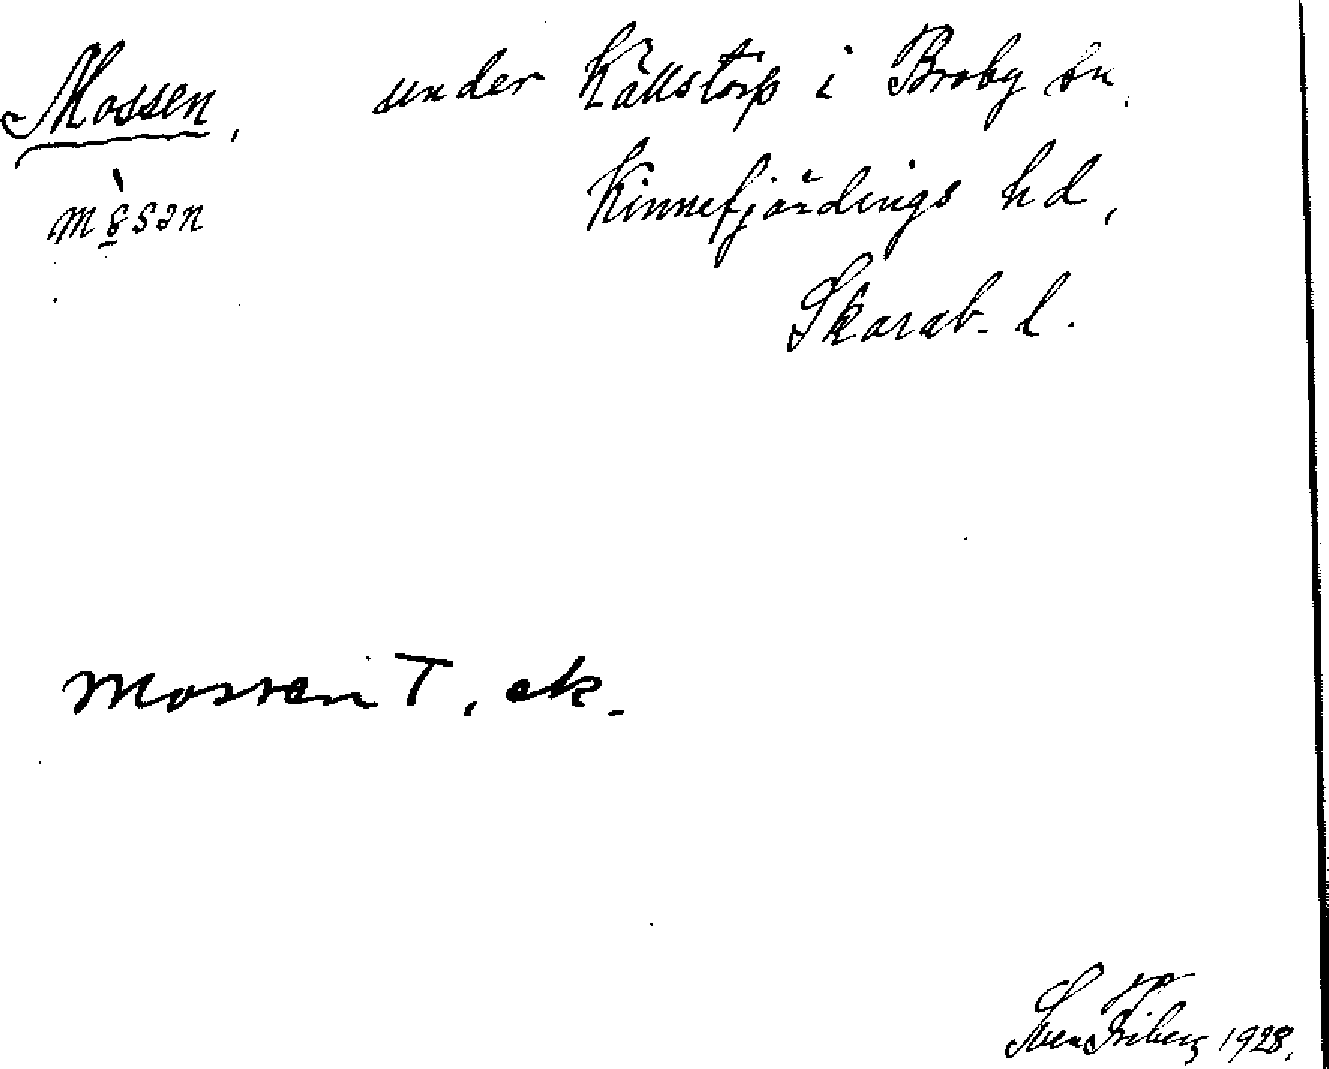 Mossen, under Källstorp i Broby sn.
Kinnefjärdings hd,
Skarab. l.
Mossen T, ek.
Sven Friberg 1928.